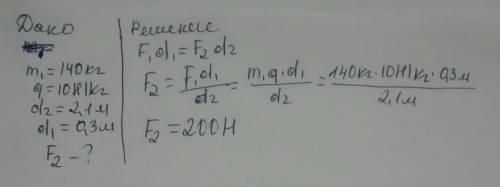 Дако
m₁ = 140кг
g = 10Н/кг
d₂ = 2,1м
d₁ = 0,3м
F₂ - ?
Решение
F₁d₁ = F₂d₂
F₂ = F₁d₁/d₂ = m₁g·d₁/d₂ = 140кг·10Н/кг·0,3м/2,1м
F₂ = 200Н